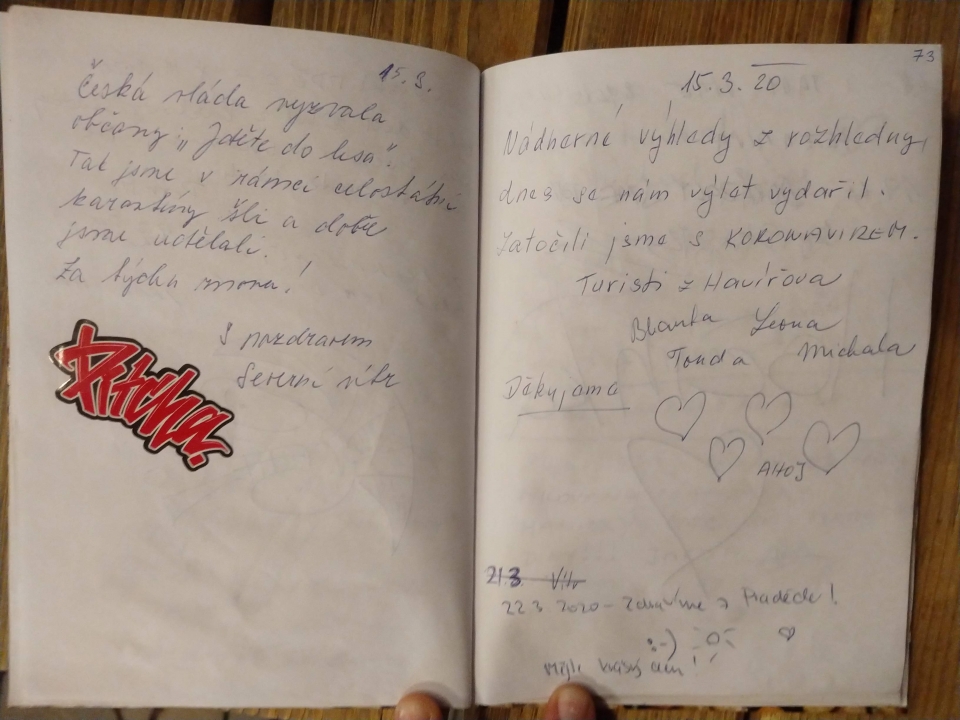 15.3.
Česká vláda vyzvala
občany „Jděte do lesa“.
Tak jsme v rámci celostátní
karantény šli a dobře
jsme udělali.
Za týden znova!
S pozdravem
Severní vítr
Pitcha
73
15.3.20
Nádherné výhledy z rozhledny,
dnes se nám výlet vydařil.
Zatočili jsme s KORONAVIREM.
Turisti z Havířova
Blanka Leona
Tonda Michala
Děkujeme
AHOJ
21.3.
22.3.2020 - Zdravíme z Pradědu!
:-)